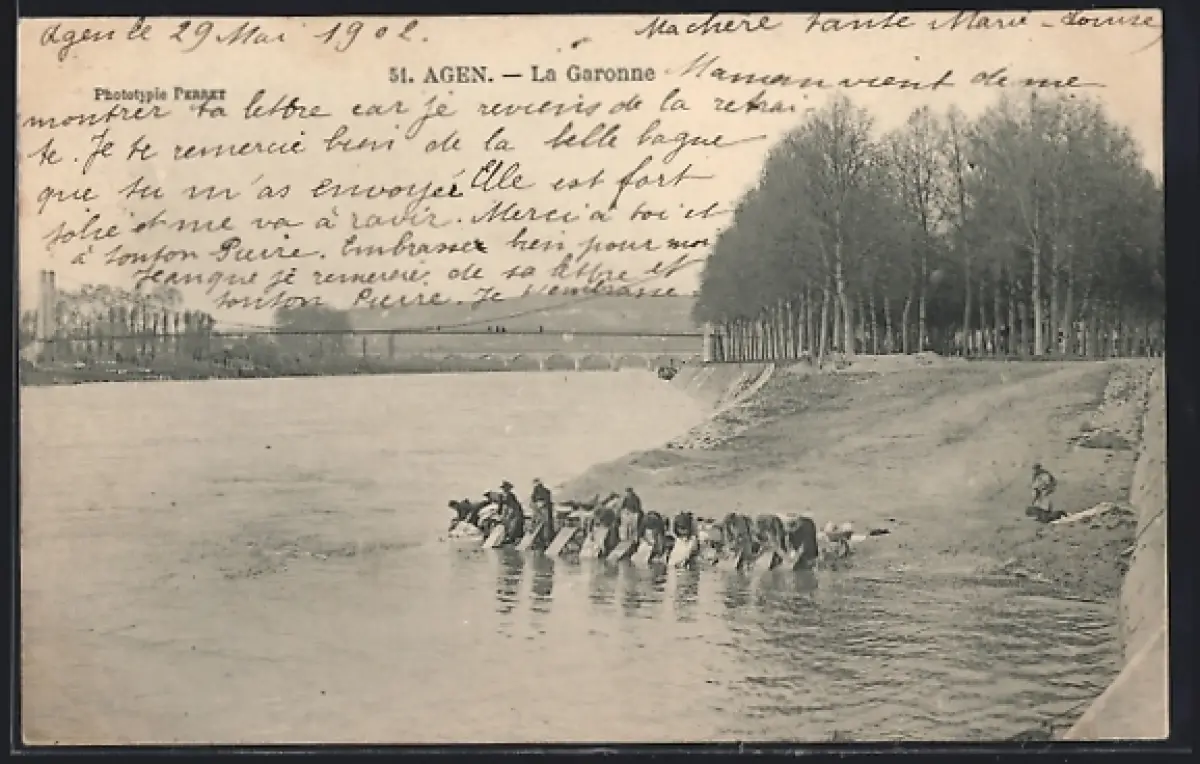 Agen le 29 Mai 1902.
Ma chère tante Marie-Louise
51. AGEN. — La Garonne
Maman vient de me
Phototypie PERRET
montrer ta lettre car je reviens de la retrai-
te. Je te remercie bien de la belle bague
que tu m'as envoyée Elle est fort
jolie et me va à ravir. Merci à toi et
à tonton Pierre. Embrasse bien pour moi
Jean que je remercie de sa lettre et
tonton Pierre. Je t'embrasse